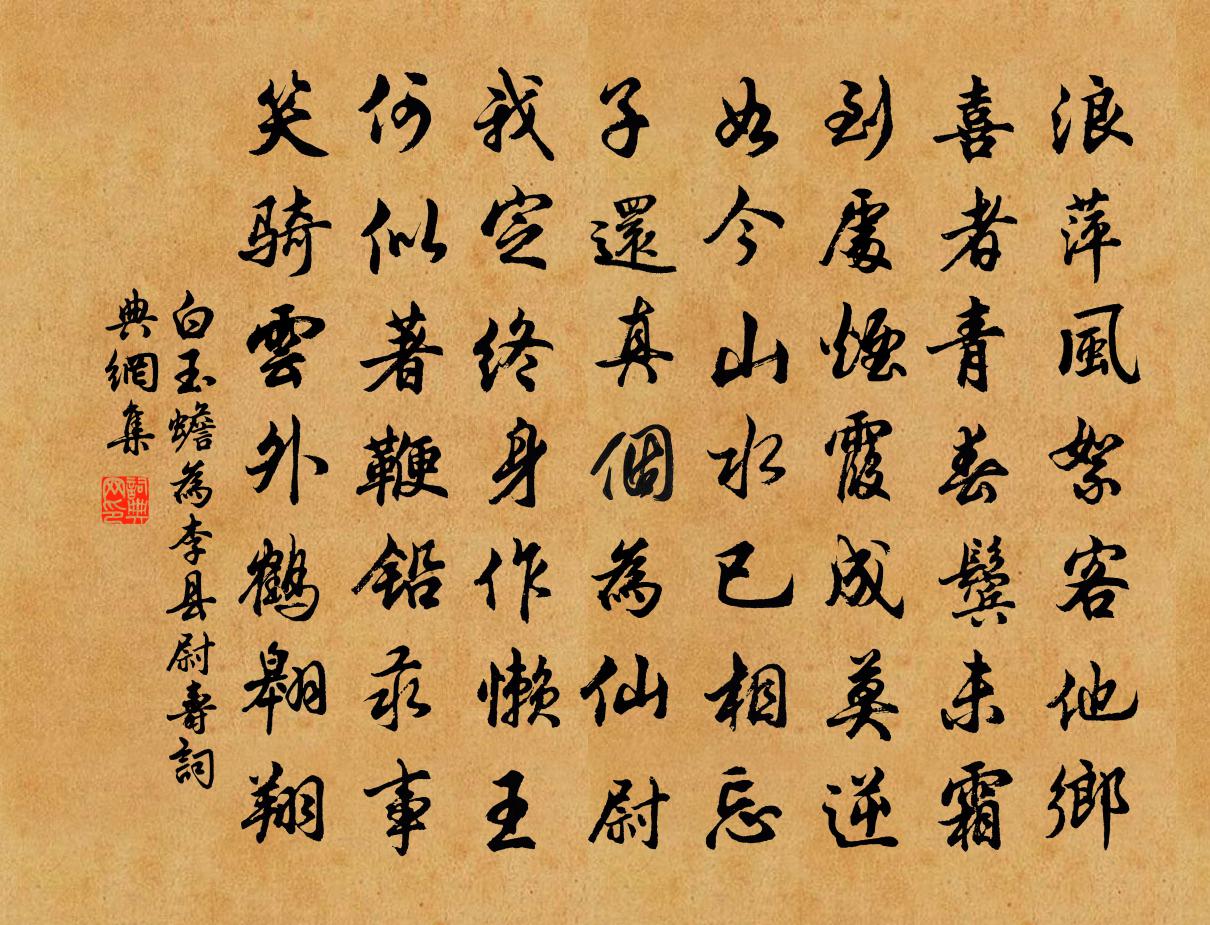 浪萍風絮客他鄉
喜者青春鬢未霜
到處煙霞成莫逆
如今山水已相忘
子還真個為仙尉
我定終身作懶王
何似著鞭鉛汞事
笑騎雲外鶴翱翔
白玉蟾為李县尉壽詞
典網集
詞典
网印